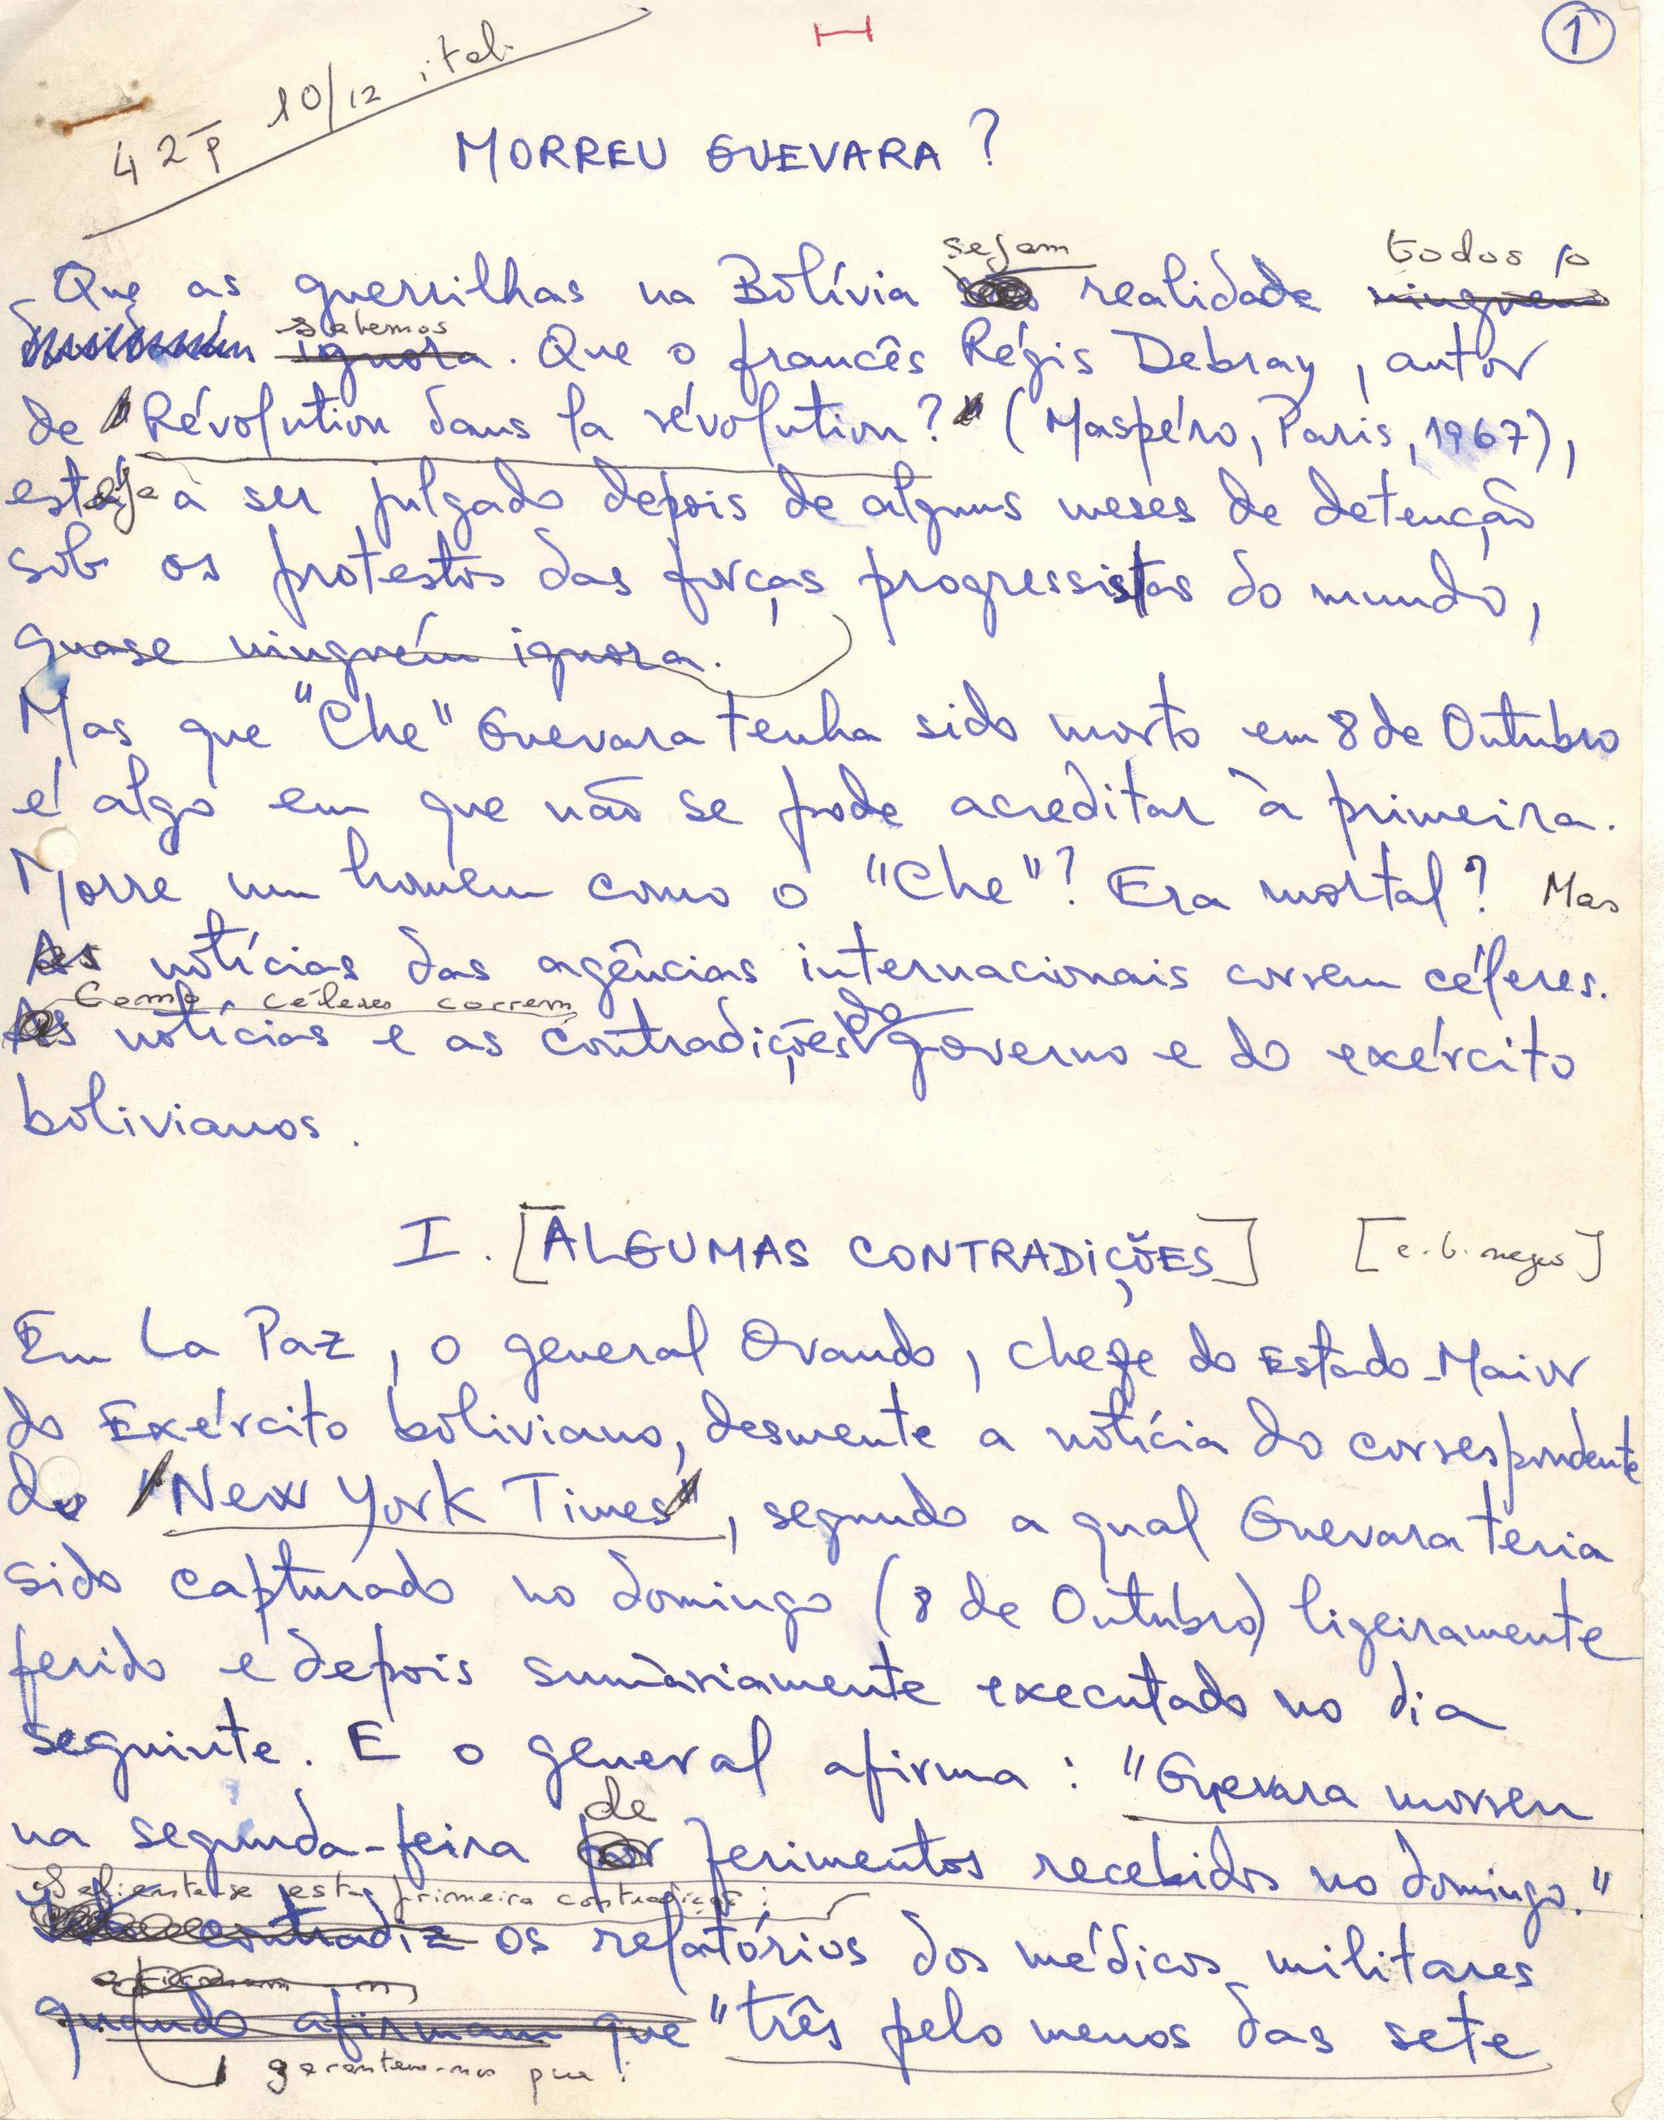 1
42 p 10/12 ital.
MORREU GUEVARA?
sejam todos o
Que as guerrilhas na Bolívia realidade ninguém
sabemos
ignora. Que o francês Régis Debray, autor
de "Révolution dans la révolution?" (Maspéro, Paris, 1967),
esteja a ser julgado depois de alguns meses de detenção
sob os protestos das forças progressistas do mundo,
quase ninguém ignora.
Mas que "Che" Guevara tenha sido morto em 8 de Outubro
é algo em que não se pode acreditar à primeira.
Morre um homem como o "Che"? Era mortal? Mas
as notícias das agências internacionais correm céleres.
Como céleres correm
as notícias e as contradições do governo e do exército
bolivianos.
I. [ALGUMAS CONTRADIÇÕES] [c. b. negro]
Em La Paz, o general Ovando, chefe do Estado-Maior
do Exército boliviano, desmente a notícia do correspondente
do "New York Times", segundo a qual Guevara teria
sido capturado no domingo (8 de Outubro) ligeiramente
ferido e depois sumàriamente executado no dia
seguinte. E o general afirma: "Guevara morreu
de
na segunda-feira por ferimentos recebidos no domingo."
Saliente-se esta primeira contradição:
contradiz os relatórios dos médicos militares
afirmam
quando afirmam que "três pelo menos das sete
garantem-nos que: